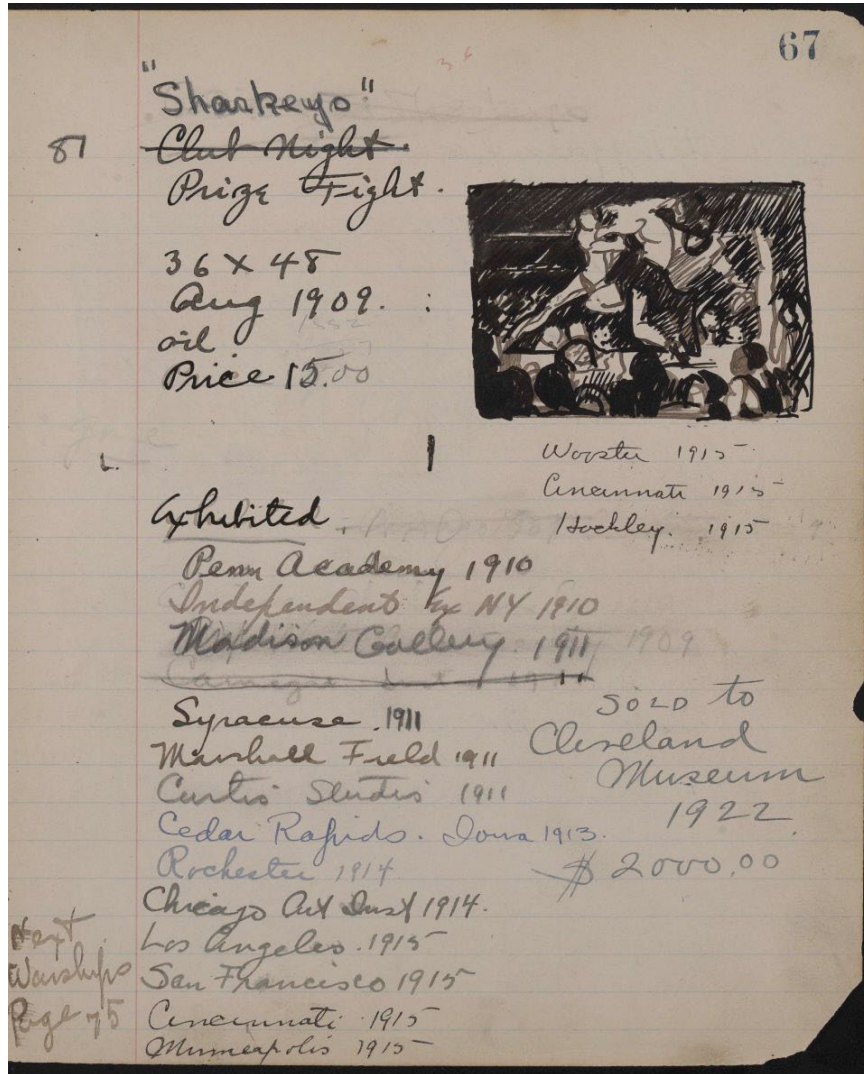 67
"Sharkeys"
87
Club Night.
Prize Fight.
36 X 48
Aug 1909.
oil
Price 15.00
Wooster 1915
Cincinnati 1915
Hackley. 1915
Exhibited.
Penn Academy 1910
Independent Ex NY 1910
Madison Gallery. 1911 1909
Carnegie Inst
Syracuse. 1911
Marshall Field 1911
Curtis Studio 1911
Cedar Rapids. Iowa 1913.
Rochester 1914
Chicago Art Inst 1914.
Los Angeles. 1915
San Francisco 1915
Cincinnati 1915
Minneapolis 1915
SOLD to
Cleveland
Museum
1922
$2000.00
Next
Warships
Page 75